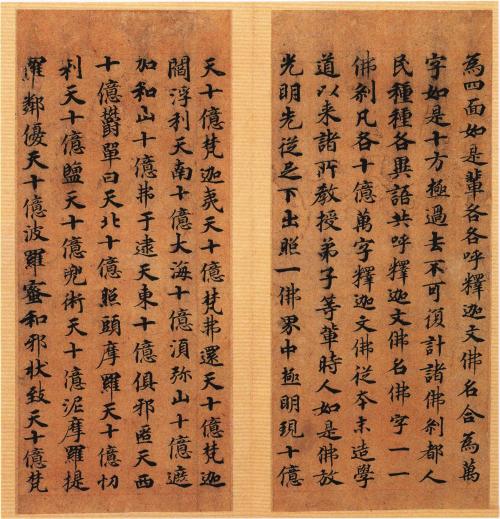 為四面如是輩各各呼釋迦文佛名合為萬
字如是十方極過去不可復計諸佛剎都人
民種種各異語共呼釋迦文佛名佛字一一
佛剎凡各十億萬字釋迦文佛從本末造學
道以来諸所教授弟子等輩時人如是佛放
光明先從足下出照一佛界中極明現十億
天十億梵迦夷天十億梵弗還天十億梵迦
閻浮利天南十億大海十億湏弥山十億遮
加和山十億弗于逮天東十億俱邪匿天西
十億欝單曰天北十億照頭摩羅天十億忉
利天十億鹽天十億兜術天十億泥摩羅提
羅鄰優天十億波羅蜜和邪拔致天十億梵